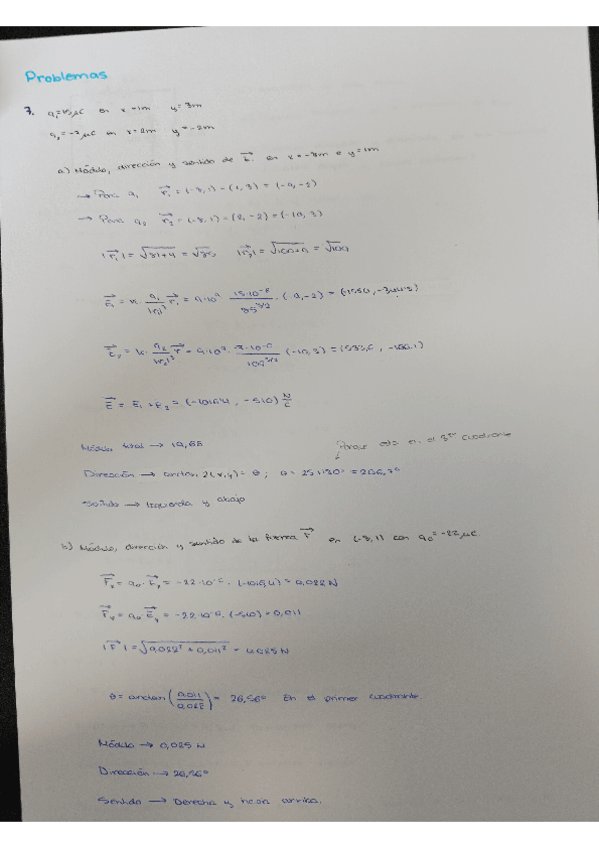 Problemas
7. q₁=15 μC en x=1m y=3m
q₂=-7 μC en x=2m y=-2m
a) Módulo, dirección y sentido de E en x=-8m e y=1m
→ Para q₁ r₁ = (-8,1) - (1,3) = (-9,-2)
→ Para q₂ r₂ = (-8,1) - (2,-2) = (-10,3)
|r₁| = √81+4 = √85 |r₂| = √100+9 = √109
E₁ = K · q₁/|r₁|³ r₁ = 9·10⁹ 15·10⁻⁶/85^3/2 · (-9,-2) =
E₂ = K · q₂/|r₂|³ r = 9·10⁹ · 10⁻⁶/109^3/2 (-10,3) =
E = E₁ + E₂ = N/C
Módulo total →
Porque está en el 3er cuadrante
Dirección → arctan 2(x,y) = θ ; θ =
Sentido → Izquierda y abajo
b) Módulo, dirección y sentido de la fuerza F en (-8,1) con q₀ = -22 μC.
Fₓ = q₀ · Eₓ = -22·10⁻⁶ · = 0,022 N
Fᵧ = q₀ Eᵧ = -22·10⁻⁶ · (-510) = 0,011
|F| = √0,022² + 0,011² = N
θ = arctan (0,011/0,022) = 26,56° En el primer cuadrante.
Módulo → 0,025 N
Dirección → 26,56°
Sentido → Derecha y hacia arriba.